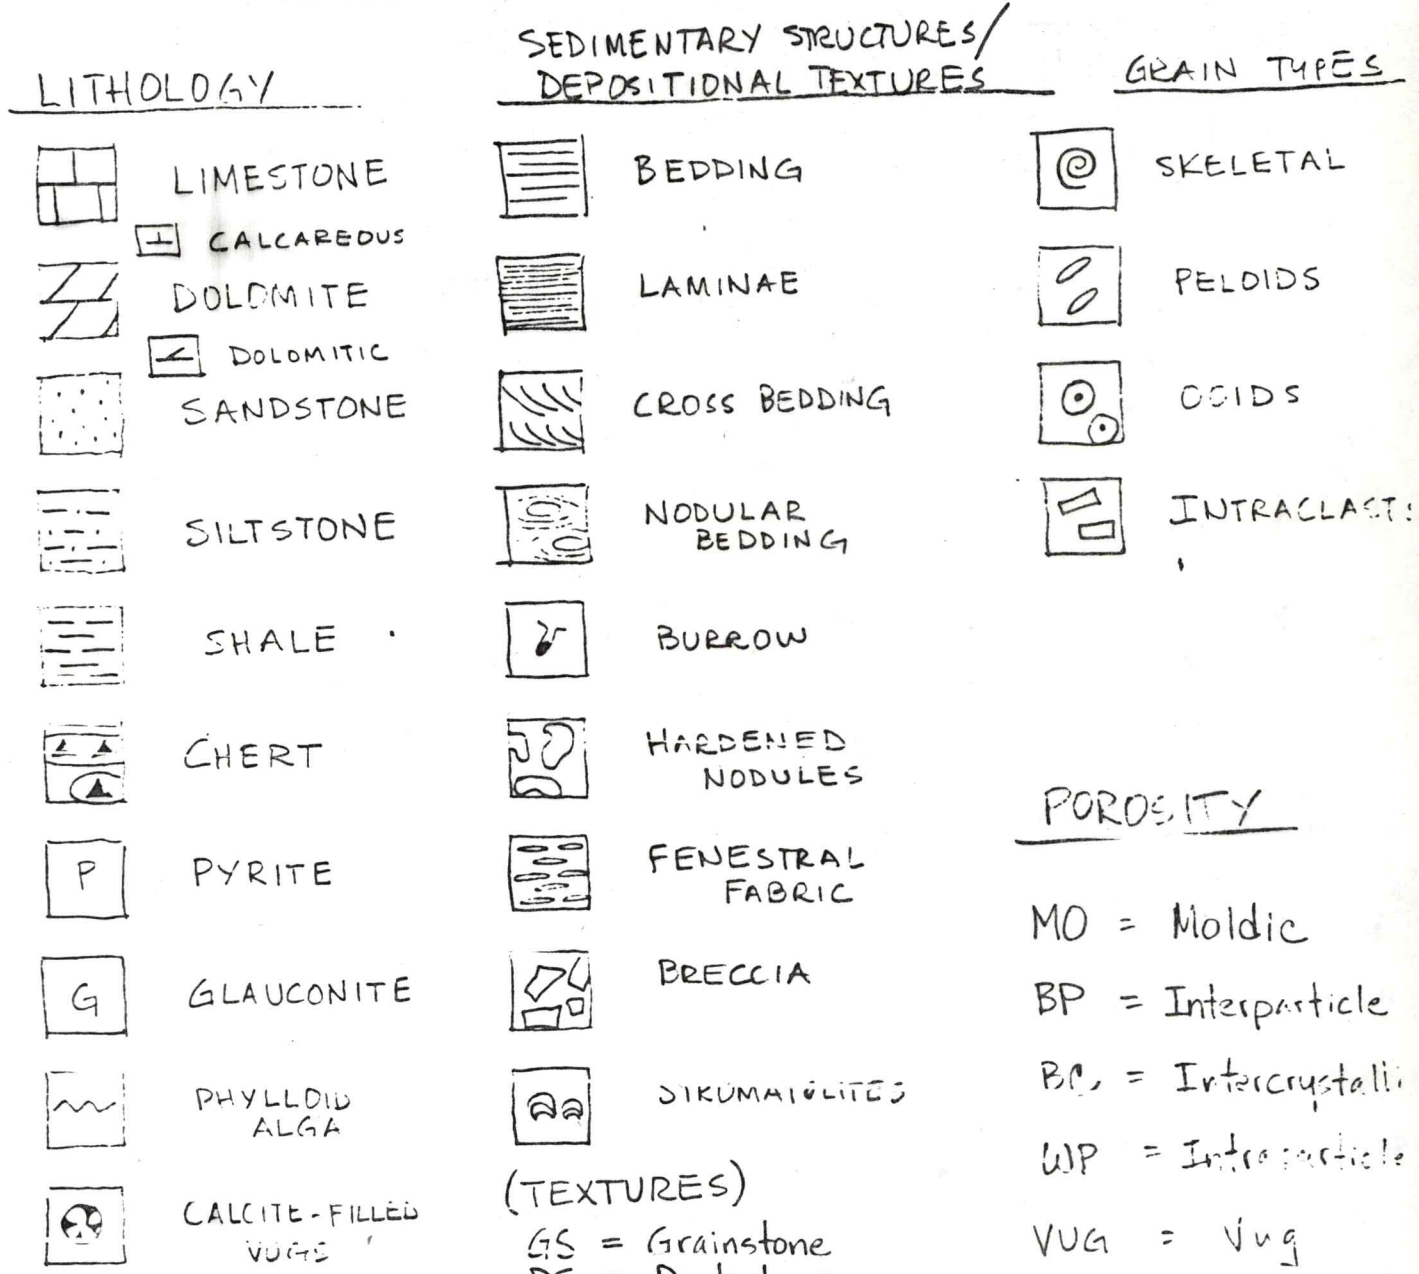 LITHOLOGY
LIMESTONE
CALCAREOUS
DOLOMITE
DOLOMITIC
SANDSTONE
SILTSTONE
SHALE
CHERT
P PYRITE
G GLAUCONITE
PHYLLOID
ALGA
CALCITE-FILLED
VUGS
SEDIMENTARY STRUCTURES/
DEPOSITIONAL TEXTURES
BEDDING
LAMINAE
CROSS BEDDING
NODULAR
BEDDING
BURROW
HARDENED
NODULES
FENESTRAL
FABRIC
BRECCIA
STROMATOLITES
(TEXTURES)
GS = Grainstone
GRAIN TYPES
SKELETAL
PELOIDS
OOIDS
INTRACLASTS
POROSITY
MO = Moldic
BP = Interparticle
BC = Intercrystalli
WP = Intraparticle
VUG = Vug